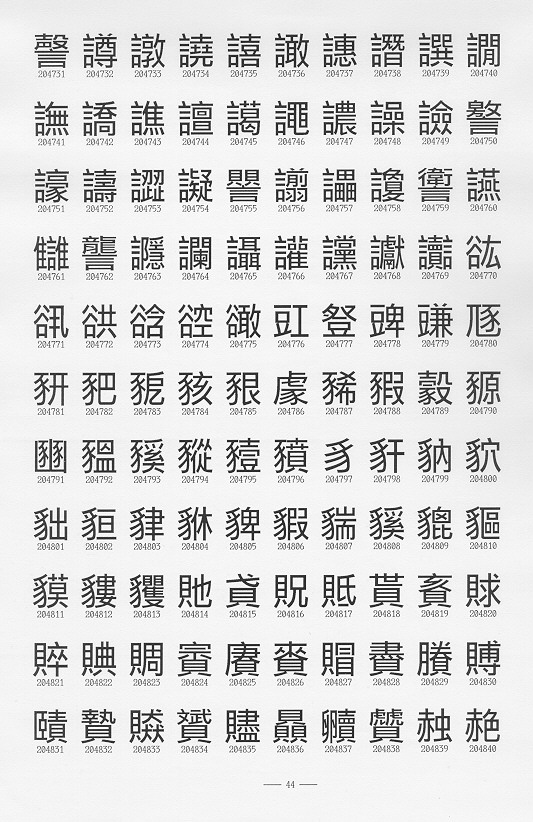 謦 譐 譈 譊 譆 譀 譓 譖 譔 𧬘
204731 204732 204733 204734 204735 204736 204737 204738 204739 204740
譕 譑 譙 譠 譪 譝 譨 譟 譣 警
204741 204742 204743 204744 204745 204746 204747 204748 204749 204750
譹 譸 譅 譺 譻 譾 讄 讂 讆 讌
204751 204752 204753 204754 204755 204756 204757 204758 204759 204760
讎 讋 讔 讕 讘 讙 讜 讞 讟 谹
204761 204762 204763 204764 204765 204766 204767 204768 204769 204770
谻 谼 谽 谾 豃 豇 豋 豍 豏 豗
204771 204772 204773 204774 204775 204776 204777 204778 204779 204780
豜 豝 豟 豥 豤 豦 豨 豭 豰 豲
204781 204782 204783 204784 204785 204786 204787 204788 204789 204790
豳 豱 豯 豵 豷 豶 豸 豻 豽 貁
204791 204792 204793 204794 204795 204796 204797 204798 204799 204800
貀 貆 貄 貅 貏 貑 貒 貕 貔 貙
204801 204802 204803 204804 204805 204806 204807 204808 204809 204810
貘 貗 貜 貤 貣 貺 貾 貰 賌 賕
204811 204812 204813 204814 204815 204816 204817 204818 204819 204820
賥 賟 賙 賨 賡 賚 賵 賷 賸 賻
204821 204822 204823 204824 204825 204826 204827 204828 204829 204830
賾 贄 贆 贇 贐 贔 贕 贙 赨 赩
204831 204832 204833 204834 204835 204836 204837 204838 204839 204840
— 44 —